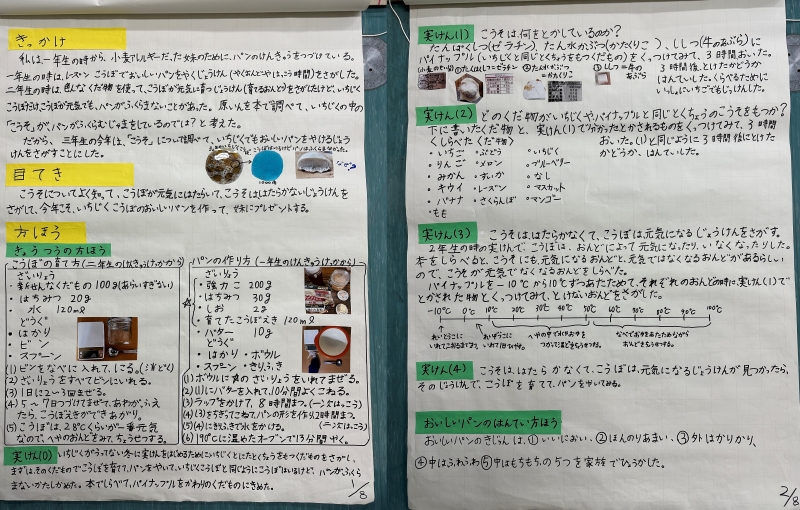 きっかけ
私は一年生の時から、小麦アルギーだった妹のために、パンのけんきゅうをつづけている。
一年生の時は、レーズンこうぼでおいしいパンをやくじょうけん(やくおんどやはっこう時間)をさがした。
二年生の時は、色んなくだ物を使って、こうぼが元気に育つじょうけん(育てるおんど)をさがしたけど、いちじく
こうぼだけこうぼが元気でも、パンがふくらまないことがあった。原いんを本で調べて、いちじくの中の
「こうそ」が、パンがふくらむじゃまをしているのでは?と考えた。
だから、三年生の今年は、「こうそ」について調べて、いちじくでもおいしいパンをやけるじょう
けんをさがすことにした。
なぜ?
目てき
こうそについてよく知って、こうぼが元気にはたらいて、こうそははたらかないじょうけんを
さがして、今年こそ、いちじくこうぼのおいしいパンを作って、妹にプレゼントする。
方ほう
きょうつうの方ほう
こうぼの育て方(二年生のけんきゅうけっかから)
ざいりょう
・はちみつ 20g
・水 120ml
どうぐ
・はかり
・ビン
・スプーン
(1)ビンをなべに入れて、にる。
(2)ざいりょうをすべてビンにいれる。
(3)1日に2〜3回まぜる。
(4)5〜7日つづけてまぜて、あわがふえ
たら、こうぼえきができあがり。
(5)こうぼは、28℃くらいが一番元気
なので、へやのおんどをみて、ちょうせつする。
パンの作り方(一年生のけんきゅうけっかから)
ざいりょう
・強力こ 200g
・はちみつ 30g
・しお 2g
・育てたこうぼえき 120ml
・バター 10g
どうぐ
・はかり ・ボウル
・スプーン ・きりふき
(1)ボウルに黄のざいりょうをいれてまぜる。
(2)(1)にバターを入れて、10分間よくこねる。
(3)ラップをかけて、8時間まつ。(一次はっこう)
(4)(3)をちぎってこねて、パンの形を作り、2時間まつ。
(5)(4)にきりふきで水をかける。(二次はっこう)
(6)190℃に温めたオーブンで13分間やく。
実けん(0) いちじくがうってない冬に実けんをはじめるために、いちじくとにたとくちょうをもつくだものをさがし、
まずは、そのくだものでこうぼを育てて、パンをやいて、いちじくこうぼと同じようにこうぼはいるけど、パンがふくら
まないかたしかめた。本でしらべて、パイナップルをかわりのくだものにきめた。
1/8
実けん(1) こうそは、何をとかしているのか?
たんぱくしつ(ゼラチン)、たん水かぶつ(かたくりこ)、ししつ(牛のあぶら)に
パイナップル(いちじくと同じとくちょうをもつくだもの)をくっつけてみて、3時間おいた。
①たんぱくしつ=ゼラチン
②たん水かぶつ
=かたくりこ
③ししつ=牛の
あぶら
3時間後とけたかどうか
はんていした。くらべるために
いっしょにいちごでもじっけんした。
実けん(2) どのくだ物がいちじくやパイナップルと同じとくちょうのこうそをもつか?
下に書いたくだ物と、実けん(1)で分かったとかされるものをくっつけてみて、3時間
くしらべたくだ物〉
おいた。(1)と同じように3時間後にとけた
かどうか、はんていした。
・いちご ・ぶどう ・いちじく
・りんご ・メロン ・ブルーベリー
・みかん ・すいか ・なし
・キウイ ・レーズン ・マスカット
・バナナ ・さくらんぼ ・マンゴー
・もも
実けん(3) こうそは、はたらかなくて、こうぼは、元気になるじょうけんをさがす。
2年生の時の実けんで、こうぼは、おんどによって元気になったり、いなくなったりした。
本をしらべると、こうそにも、元気になるおんどと、元気ではなくなるおんどがあるらしい
ので、こうそが元気でなくなるおんどをしらべた。
パイナップルを-10℃から10℃ずつあたためて、それぞれのおんどの時に、実けん(1)で
とかされた物とくっつけてみて、とけないおんどをさがした。
-10℃ 0℃ 10℃ 20℃ 30℃ 40℃ 50℃ 60℃ 70℃ 80℃ 90℃ 100℃
実けん(4) こうそは、はたらかなくて、こうぼは、元気になるじょうけんが見つかったら、
そのじょうけんで、こうぼを育てて、パンをやいてみる。
おいしいパンのはんてい方ほう
おいしいパンのきじゅんは、①いいにおい、②ほんのりあまい、③外はかりかり、
④中はふわふわ⑤中はもちもちの5つを家族でひょうかした。
2/8